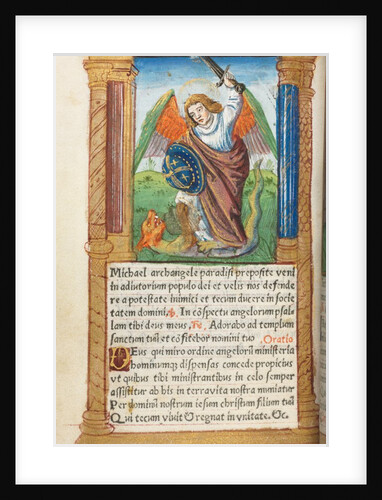 Michael archangele paradisi preposite veni
in adiutorium populo dei et velis nos defende
re a potestate inimici et tecum ducere in socie
tatem domini. In cōspectu angelorum psal
lam tibi deus meus. Adorabo ad templum
sanctum tuū et cōfitebor nomini tuo Oratio
Deus qui miro ordine angelorū ministeria
hominumqꝫ dispensas concede propicius
vt quibus tibi ministrantibus in celo semper
assistitur ab his in terra vita nostra muniatur
Per dominū nostrum iesum christum filium tuū
Qui tecum viuit & regnat in vnitate. &c.